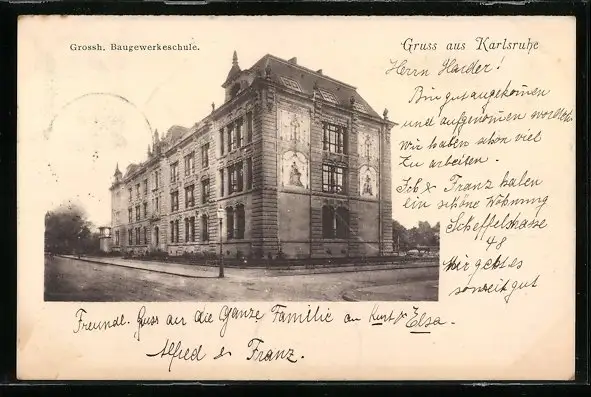 Grossh. Baugewerkeschule.
Gruss aus Karlsruhe
Herrn Harder!
Bin gut angekommen
und aufgenommen worden.
Wir haben schon viel
zu arbeiten.
Ich & Franz haben
ein schöne Wohnung
Scheffelstrasse
48
Mir geht es
soweit gut
Freundl. Gruss an die ganze Familie an Kurt & Elsa.
Alfred & Franz.